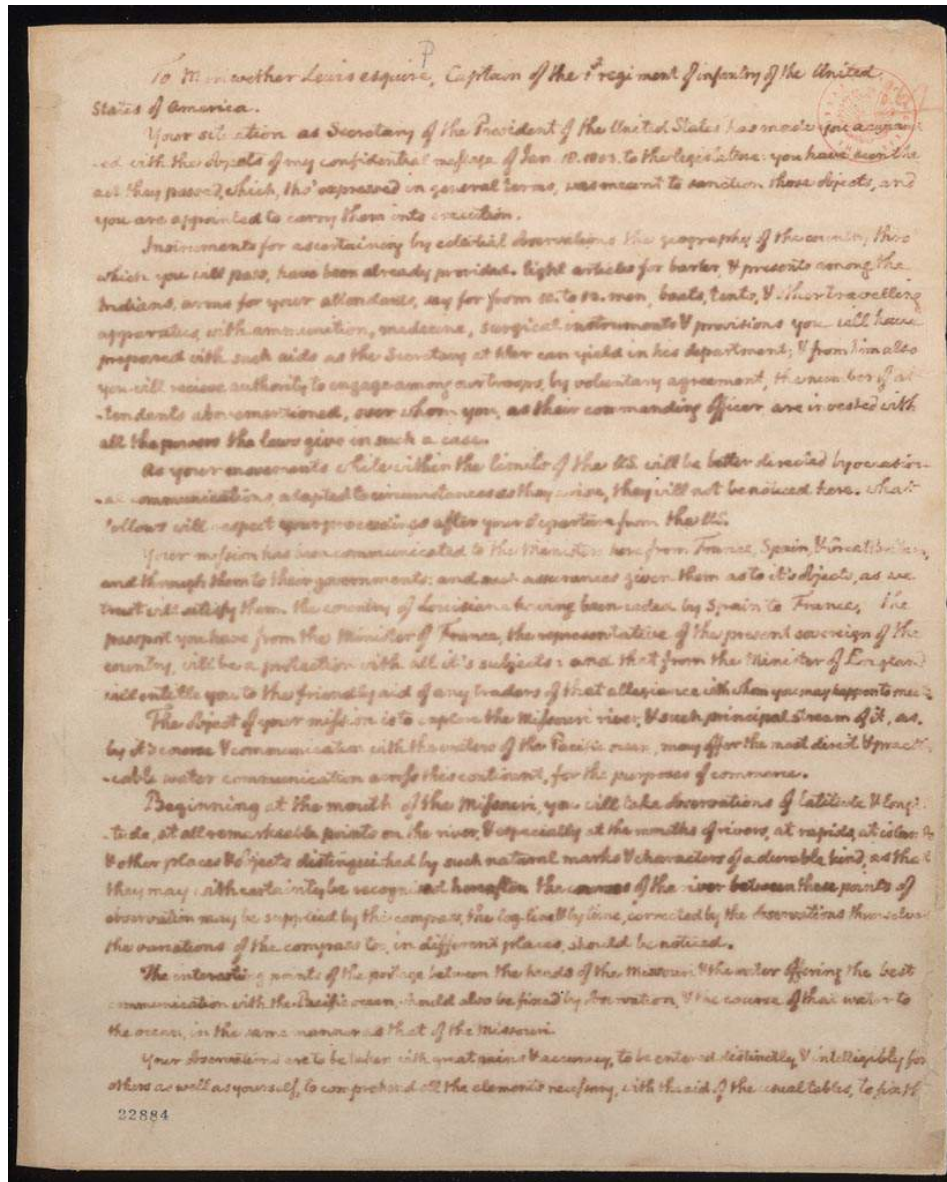 To Meriwether Lewis esquire, Captain of the 1st regiment of infantry of the United
States of America.
Your situation as Secretary of the President of the United States has made you acquaint
-ed with the objects of my confidential message of Jan. 18. 1803. to the legislature: you have seen the
act they passed, which, tho' expressed in general terms, was meant to sanction those objects, and
you are appointed to carry them into execution.
Instruments for ascertaining by celestial observations the geography of the country thro'
which you will pass, have been already provided. light articles for barter, & presents among the
Indians, arms for your attendants, say for from 10. to 12. men, boats, tents, & other travelling
apparatus, with ammunition, medicine, surgical instruments & provisions you will have
prepared with such aids as the Secretary at War can yield in his department; & from him also
you will recieve authority to engage among our troops, by voluntary agreement, the number of at
-tendants abovementioned, over whom you, as their commanding officer are invested with
all the powers the laws give in such a case.
As your movements while within the limits of the US. will be better directed by occasion
-al communications, adapted to circumstances as they arise, they will not be noticed here. what
follows will respect your proceedings after your departure from the US.
Your mission has been communicated to the Ministers here from France, Spain, & Great Britain,
and through them to their governments: and such assurances given them as to it's objects, as we
trust will satisfy them. the country of Louisiana having been ceded by Spain to France, the
passport you have from the Minister of France, the representative of the present sovereign of the
country, will be a protection with all it's subjects: and that from the Minister of England
will entitle you to the friendly aid of any traders of that allegiance with whom you may happen to meet.
The object of your mission is to explore the Missouri river, & such principal stream of it, as,
by it's course & communication with the waters of the Pacific ocean, may offer the most direct & practi
-cable water communication across this continent, for the purposes of commerce.
Beginning at the mouth of the Missouri, you will take observations of latitude & longi
-tude, at all remarkeable points on the river, & especially at the mouths of rivers, at rapids, at islands
& other places & objects distinguished by such natural marks & characters of a durable kind, as that
they may with certainty be recognised hereafter. the courses of the river between these points of
observation may be supplied by the compass, the log-line & by time, corrected by the observations themselves.
the variations of the compass too, in different places, should be noticed.
The interesting points of the portage between the heads of the Missouri & the water offering the best
communication with the Pacific ocean should also be fixed by observation, & the course of that water to
the ocean, in the same manner as that of the Missouri.
Your observations are to be taken with great pains & accuracy, to be entered distinctly, & intelligibly for
others as well as yourself, to comprehend all the elements necessary, with the aid of the usual tables, to fix th
22884